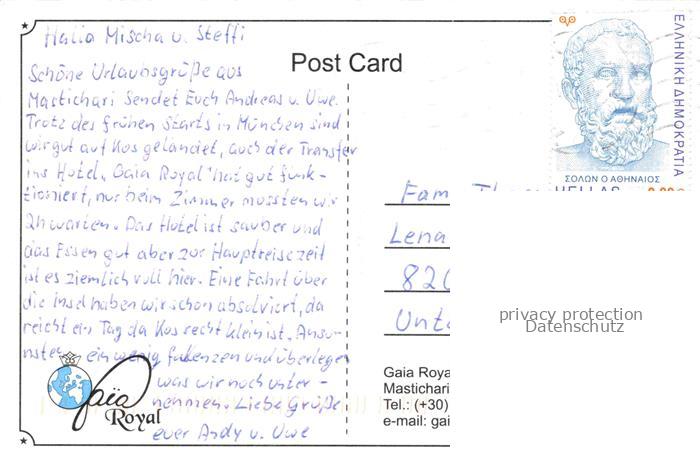 Hallo Mischa u. Steffi
Post Card
Schöne Urlaubsgrüße aus
Mastichari sendet Euch Andreas u. Uwe.
Trotz des frühen Starts in München sind
wir gut auf Kos gelandet, auch der Transfer
ins Hotel „Gaia Royal" hat gut funk-
tioniert, nur beim Zimmer mussten wir
2h warten. Das Hotel ist sauber und
das Essen gut aber zur Hauptreisezeit
ist es ziemlich voll hier. Eine Fahrt über
die Insel haben wir schon absolviert, da
reicht ein Tag da Kos recht klein ist. Anso-
nsten ein wenig faulenzen und überlegen
was wir noch unter-
nehmen. Liebe Grüße
euer Andy u. Uwe
Gaïa
Royal
ΕΛΛΗΝΙΚΗ ΔΗΜΟΚΡΑΤΙΑ
ΣΟΛΩΝ Ο ΑΘΗΝΑΙΟΣ
HELLAS
Fam
Lena
820
Unt
privacy protection
Datenschutz
Gaia Roya
Mastichari
Tel.: (+30)
e-mail: gai